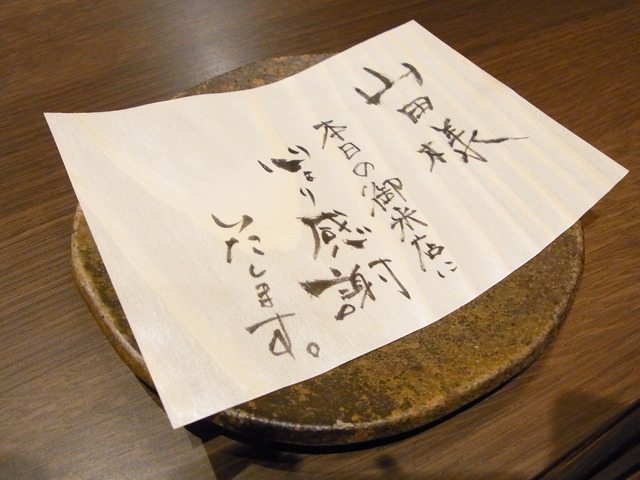 山田様
本日の御来店に
心より感謝
いたします。